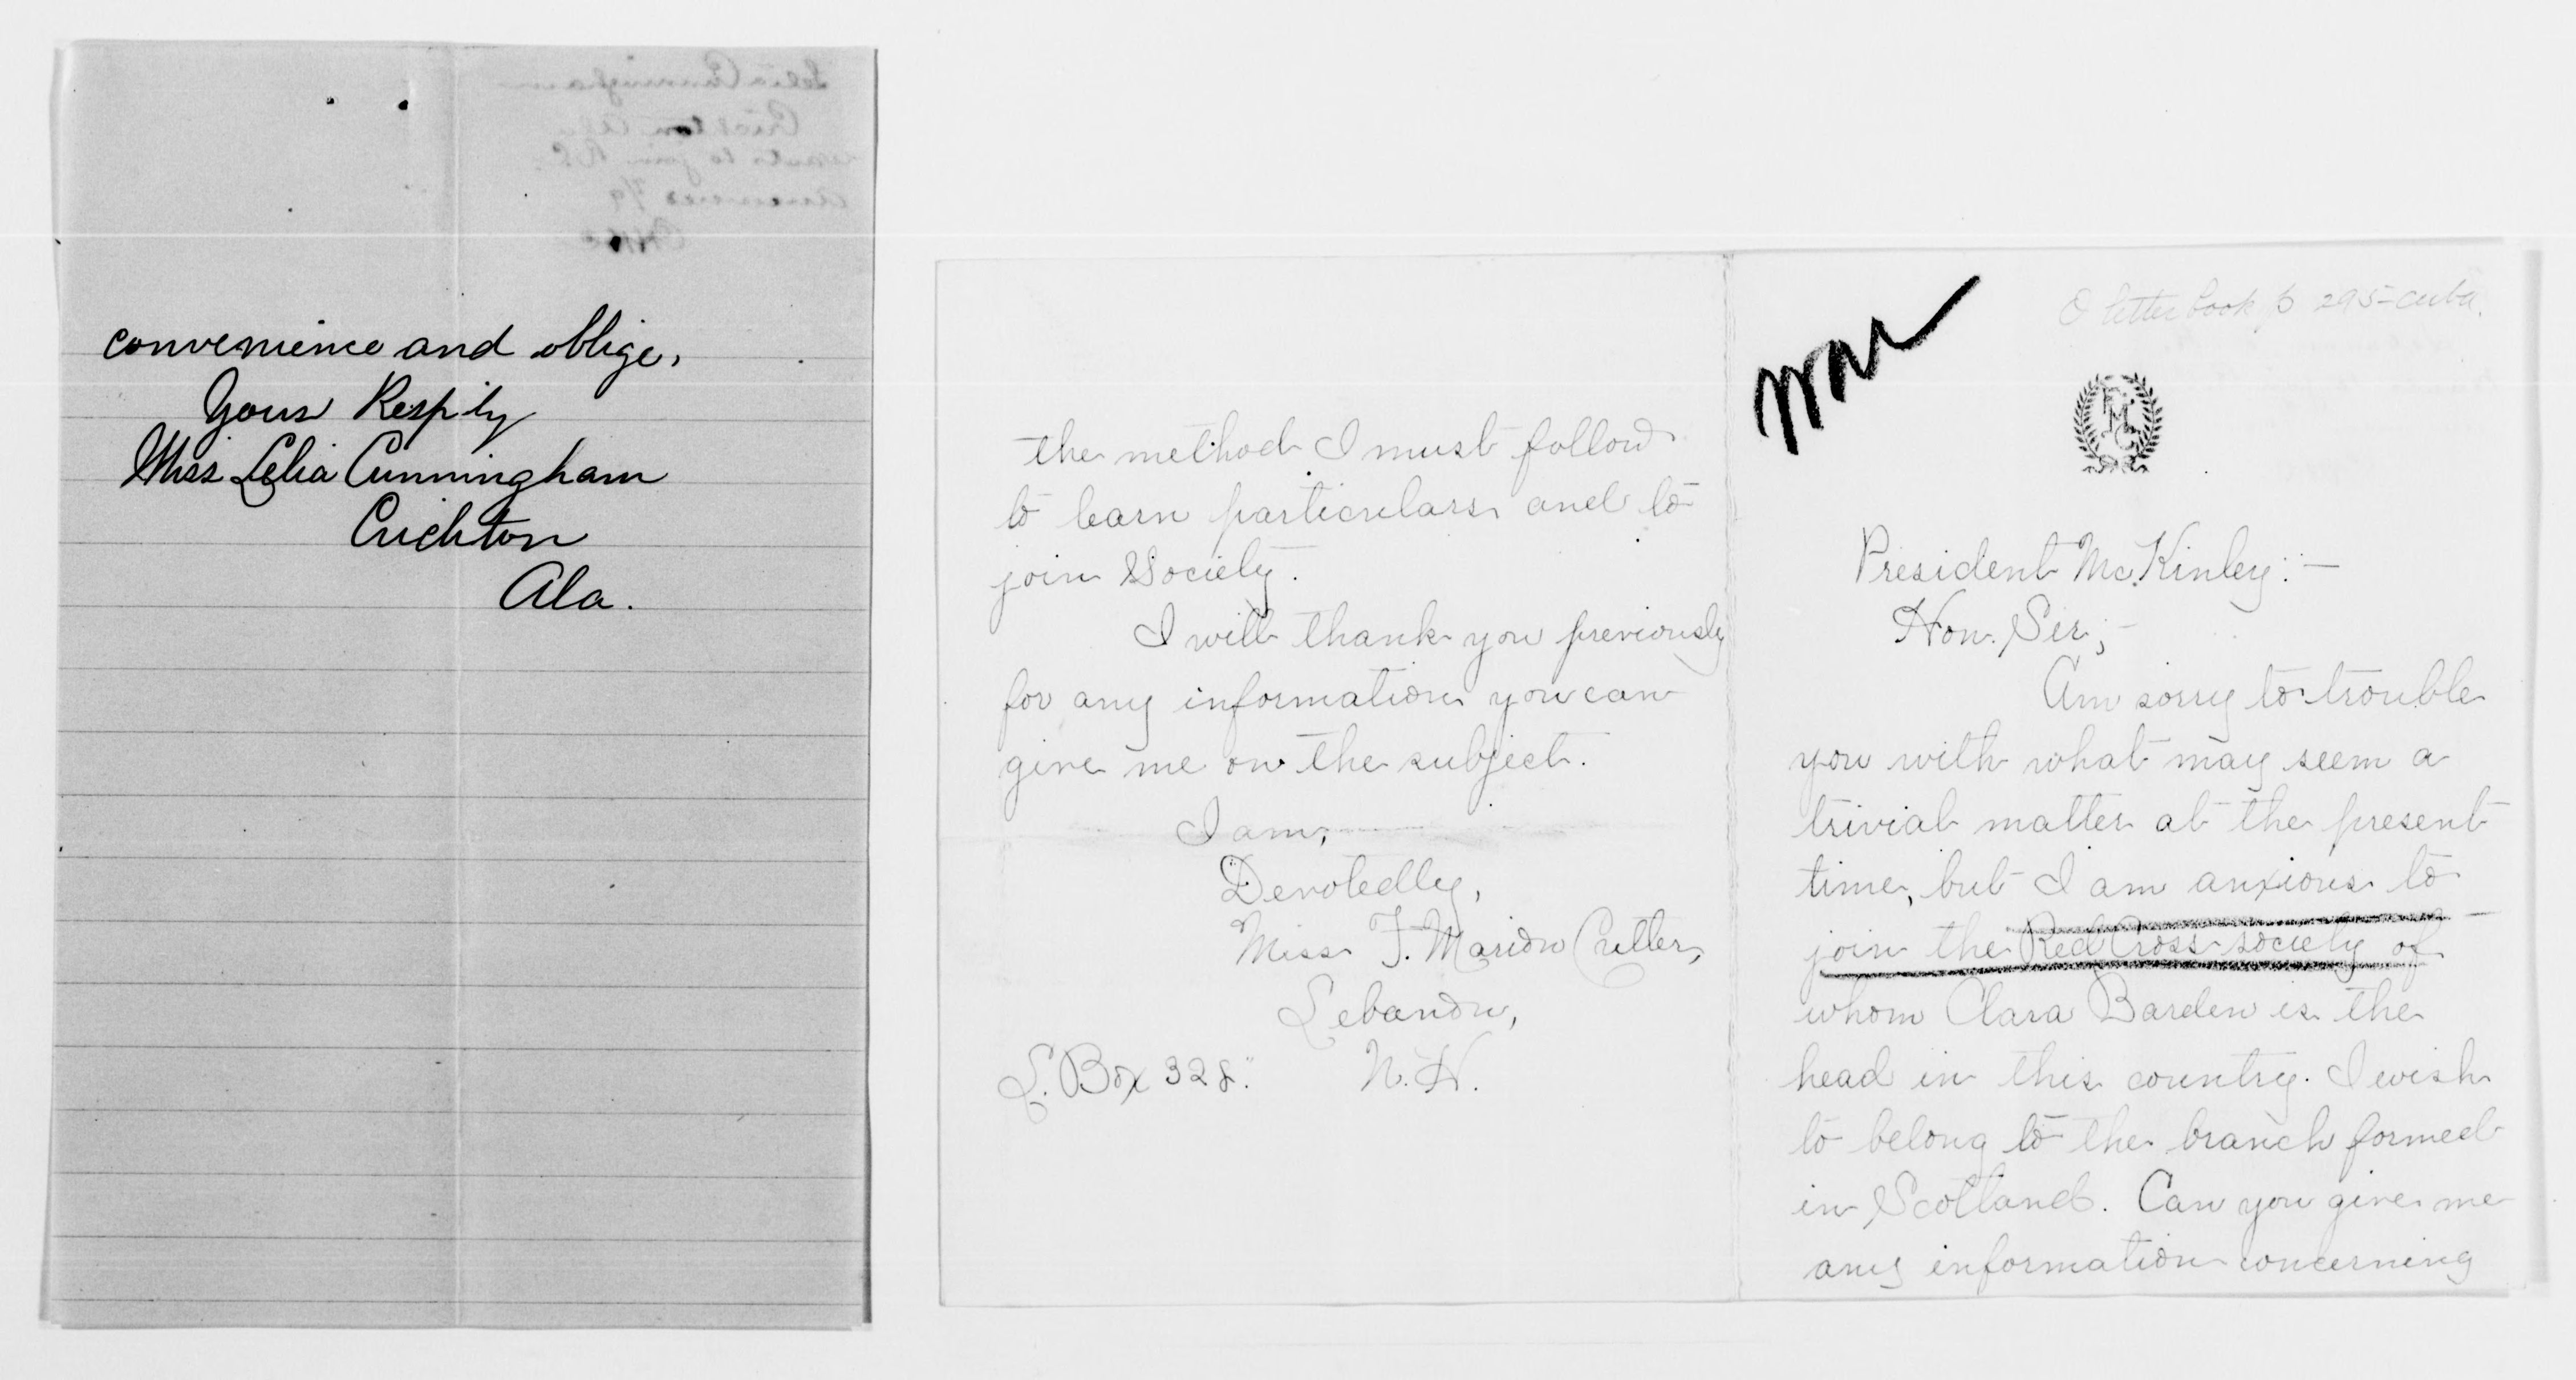 convenience and oblige,
Yours Resptly
Miss Lelia Cunningham
Crichton
Ala.
O letter book p 295-Cuba.
War
FMC
President McKinley:—
Hon. Sir;—
Am sorry to trouble
you with what may seem a
trivial matter at the present
time, but I am anxious to
join the Red Cross society of
whom Clara Barden is the
head in this country. I wish
to belong to the branch formed
in Scotland. Can you give me
any information concerning
the method I must follow
to learn particulars and to
join Society.
I will thank you previously
for any information you can
give me on the subject.
I am,
Devotedly,
Miss F. Marion Cutler,
Lebanon,
L. Box 328. N. H.